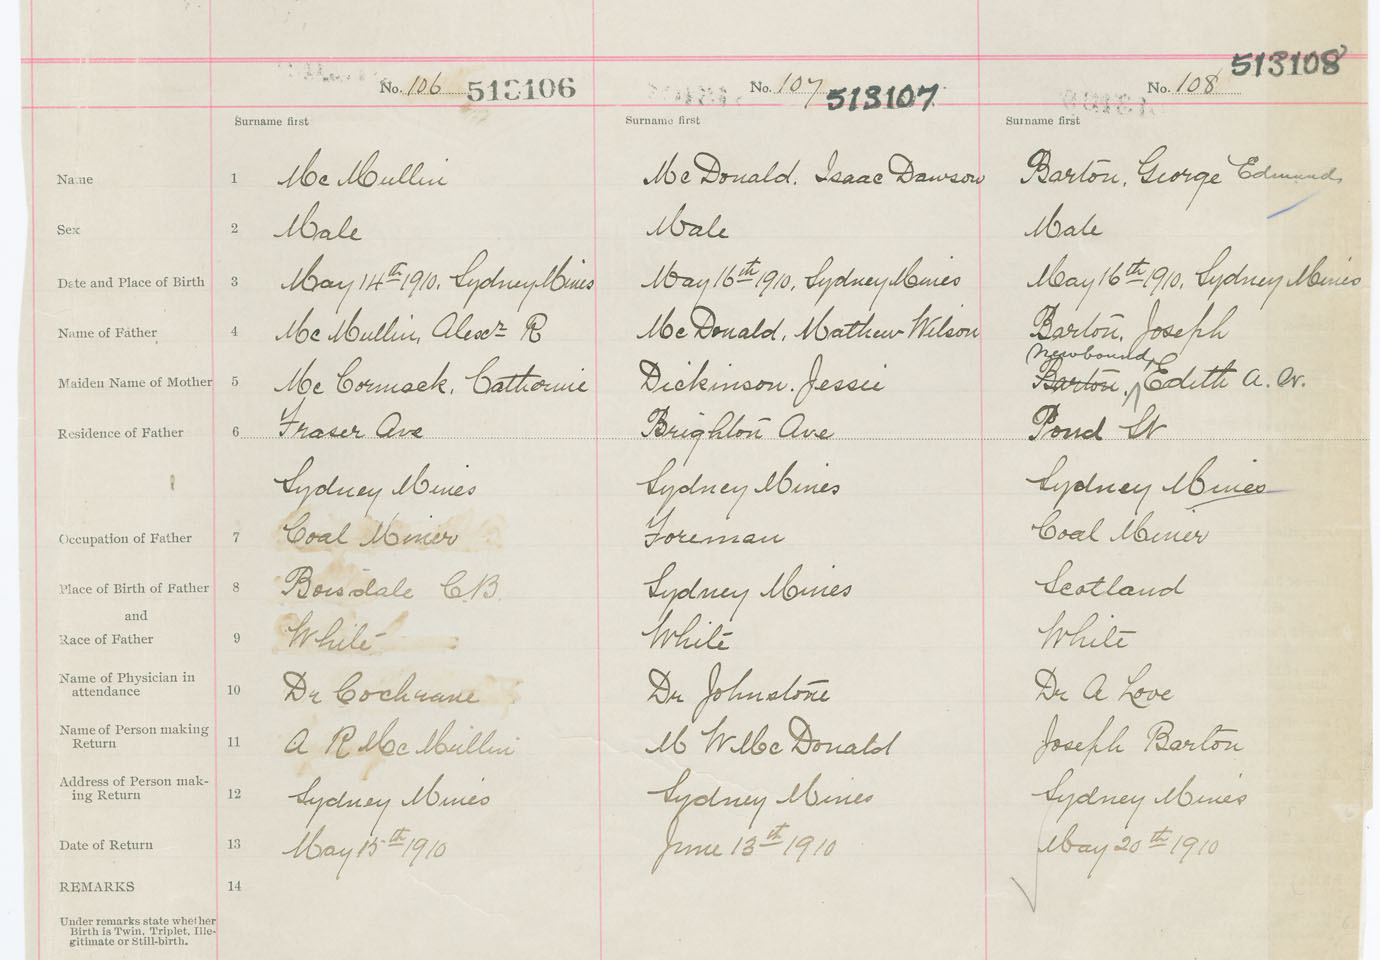 No. 106 513106 No. 107 513107 No. 108 513108
Surname first Surname first Surname first
Name 1 McMullin McDonald, Isaac Dawson Barton, George Edmund
Sex 2 Male Male Male
Date and Place of Birth 3 May 14th 1910, Sydney Mines May 16th 1910, Sydney Mines May 16th 1910, Sydney Mines
Name of Father 4 McMullin, Alexr R McDonald, Mathew Wilson Barton, Joseph
Newbound,
Maiden Name of Mother 5 McCormack, Catherine Dickinson, Jessie Barton, Edith A. W.
Residence of Father 6 Fraser Ave Brighton Ave Pond St
Sydney Mines Sydney Mines Sydney Mines
Occupation of Father 7 Coal Miner Foreman Coal Miner
Place of Birth of Father 8 Boisdale C.B. Sydney Mines Scotland
and
Race of Father 9 White White White
Name of Physician in
attendance 10 Dr Cochrane Dr Johnstone Dr A Love
Name of Person making
Return 11 A R McMullin M W McDonald Joseph Barton
Address of Person mak-
ing Return 12 Sydney Mines Sydney Mines Sydney Mines
Date of Return 13 May 15th 1910 June 13th 1910 May 20th 1910
REMARKS 14
Under remarks state whether
Birth is Twin, Triplet, Ille-
gitimate or Still-birth.